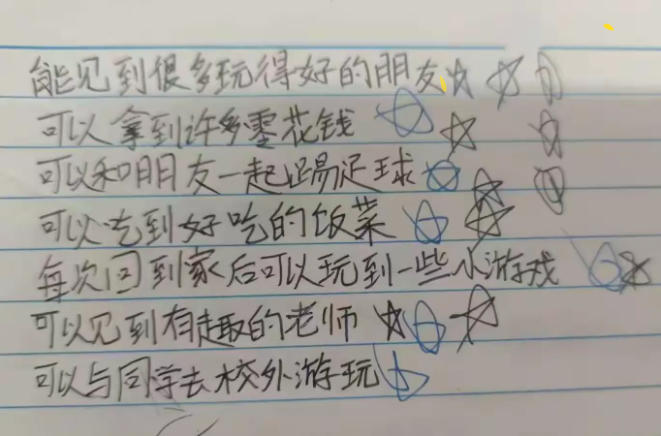 能见到很多玩得好的朋友
可以拿到许多零花钱
可以和朋友一起踢足球
可以吃到好吃的饭菜
每次回到家后可以玩到一些小游戏
可以见到有趣的老师
可以与同学去校外游玩